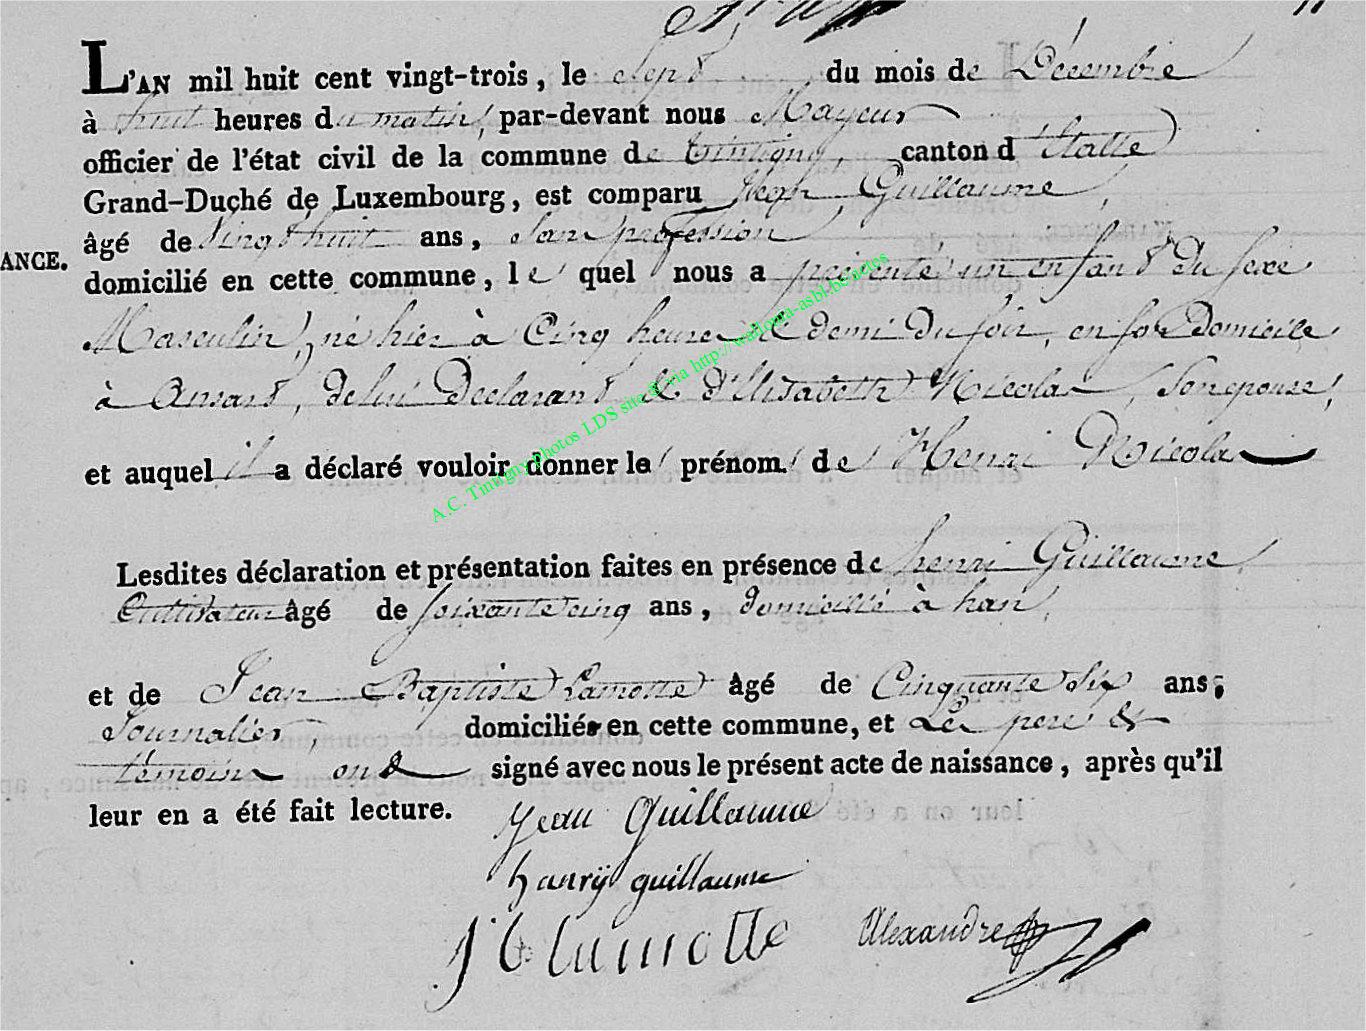 L'AN mil huit cent vingt-trois, le Sept du mois de Décembre
à huit heures du matin, par-devant nous Mayeur
officier de l'état civil de la commune de tintigny, canton d'Etalle
Grand-Duché de Luxembourg, est comparu Jean Guillaume,
âgé de Vingt huit ans, Sans profession
ANCE.
domicilié en cette commune, le quel nous a présenté un enfant du sexe
Masculin, né hier à Cinq heures et demi du soir, en son Domicile
à Ansart, de lui Declarant et d'Elisabeth Nicolas, Son epouse,
et auquel il a déclaré vouloir donner le prénom de Henri Nicolas
Lesdites déclaration et présentation faites en présence de henri Guillaume,
Cultivateur âgé de soixante cinq ans, domicilié à han,
et de Jean Baptiste Lamotte âgé de Cinquante Six ans,
Journalier, domicilié en cette commune, et Les pere et
témoins ont signé avec nous le présent acte de naissance, après qu'il
leur en a été fait lecture.
Jean Guillaume
hanrÿ guillaume
J b lamotte Alexandre
A.C. Tintigny photos LDS site & via http://wallonia-asbl.be/actes